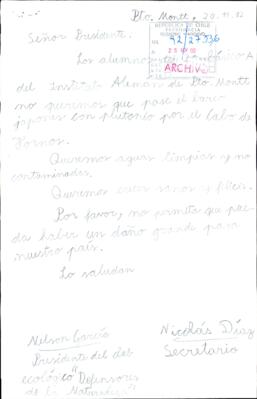 Pto. Montt, 20.11.92
Señor Presidente.
REPUBLICA DE CHILE
PRESIDENCIA
92/27336
25 NOV 92
ARCHIVO
Los alumnos del básico A
del Instituto Alemán de Pto. Montt
no queremos que pase el barco
japonés con plutonio por el Cabo de
Hornos.
Queremos aguas limpias y no
contaminadas.
Queremos estar sanos y felices.
Por favor, no permita que pue-
da haber un daño grande para
nuestro país.
Lo saludan
Nelson García
Presidente del club
ecológico "Defensores
de la Naturaleza"
Nicolás Díaz
Secretario